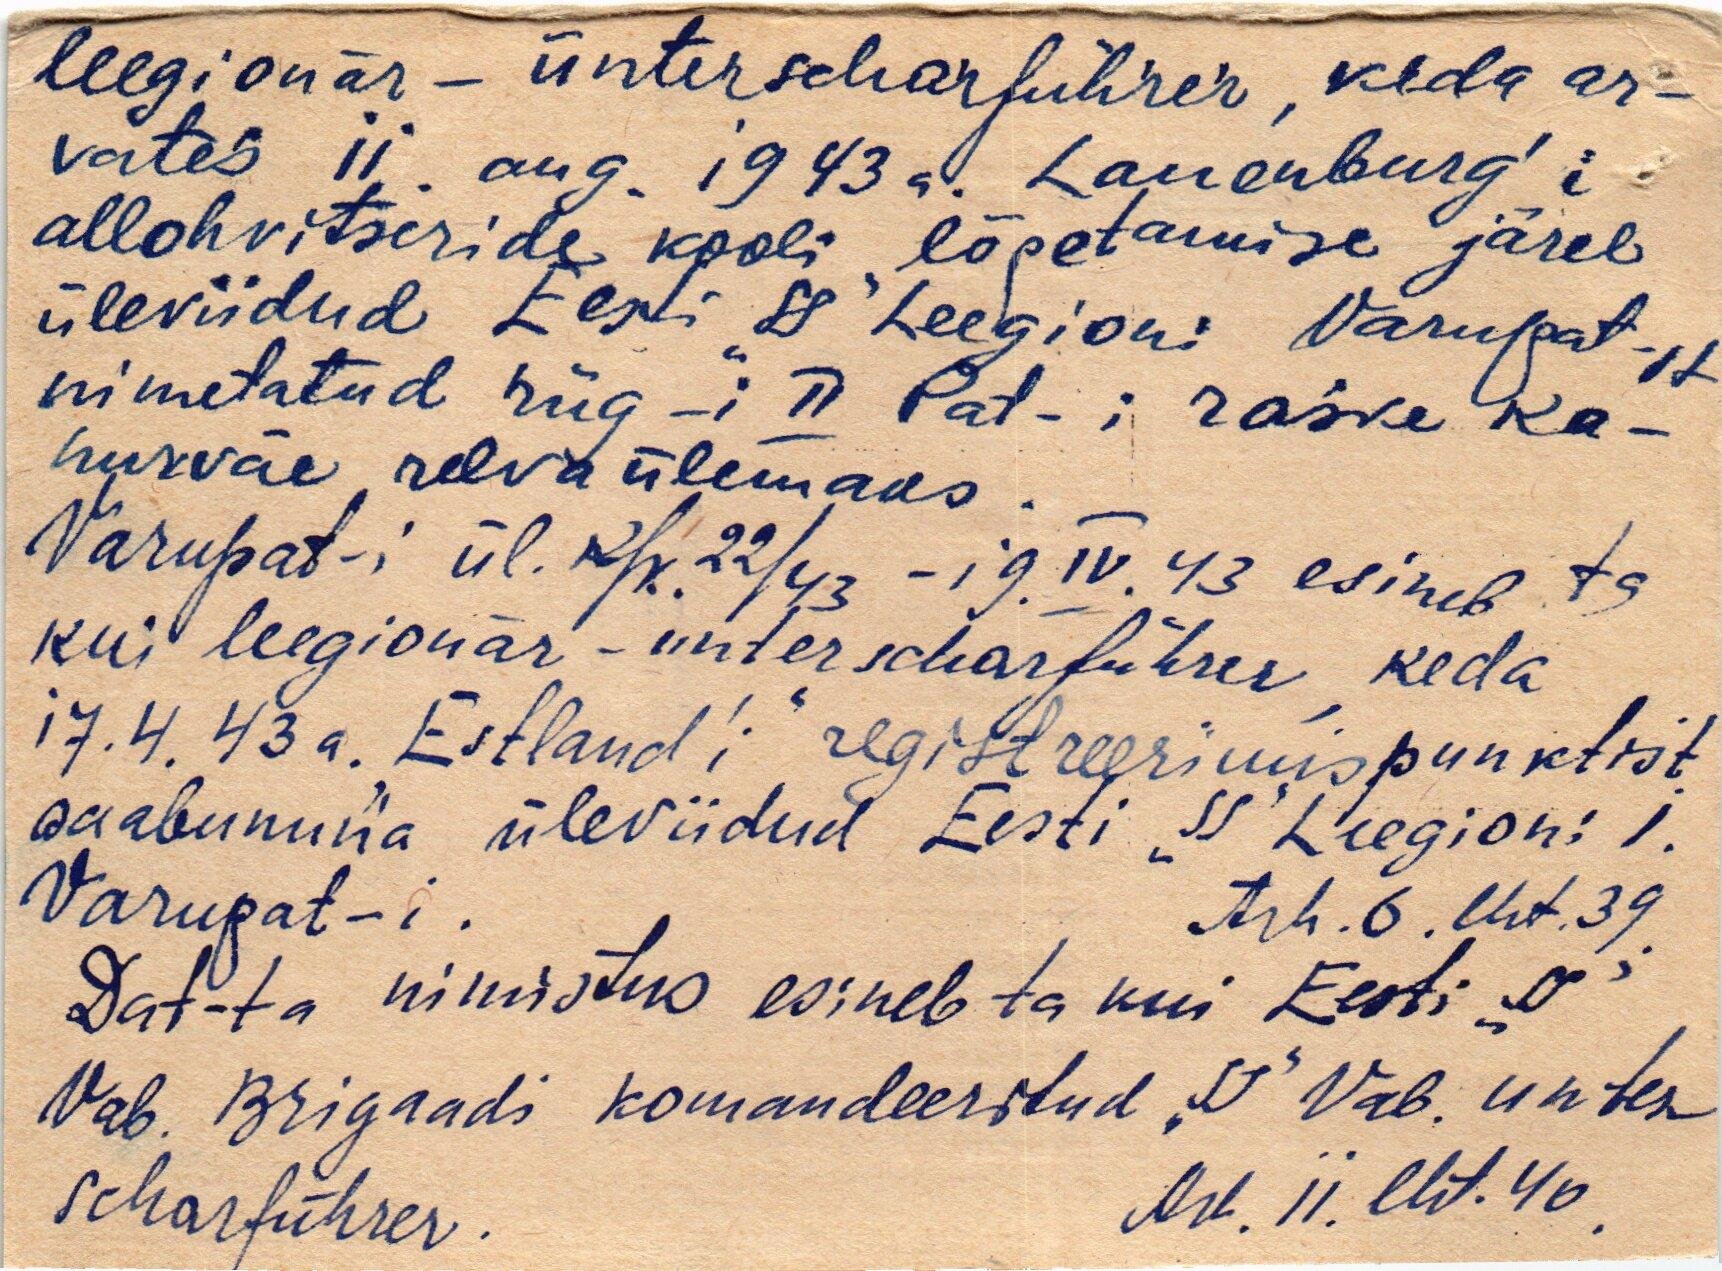 leegionär – unterscharführer, keda ar-
vates 11. aug. 1943 a. Lauenburg'i
allohvitseride kooli lõpetamise järel
üleviidud Eesti „SS" Leegioni Varupat-st
nimetatud rüg-i II Pat-i raske ka-
hurväe relvaülemaks.
Varupat-i ül. k/k. 22/43 – 19. IV. 43 esineb ta
kui leegionär – unterscharführer, keda
17. 4. 43 a. „Estland'i" registreerimispunktist
saabununa üleviidud Eesti „SS" Leegioni 1.
Varupat-i. Arh. 6. lht. 39.
Dat-ta nimistus esineb ta kui Eesti „SS"
Vab. Brigaadi komandeeritud „SS" Vab. unter
scharführer. Arh. 11. lht. 40.